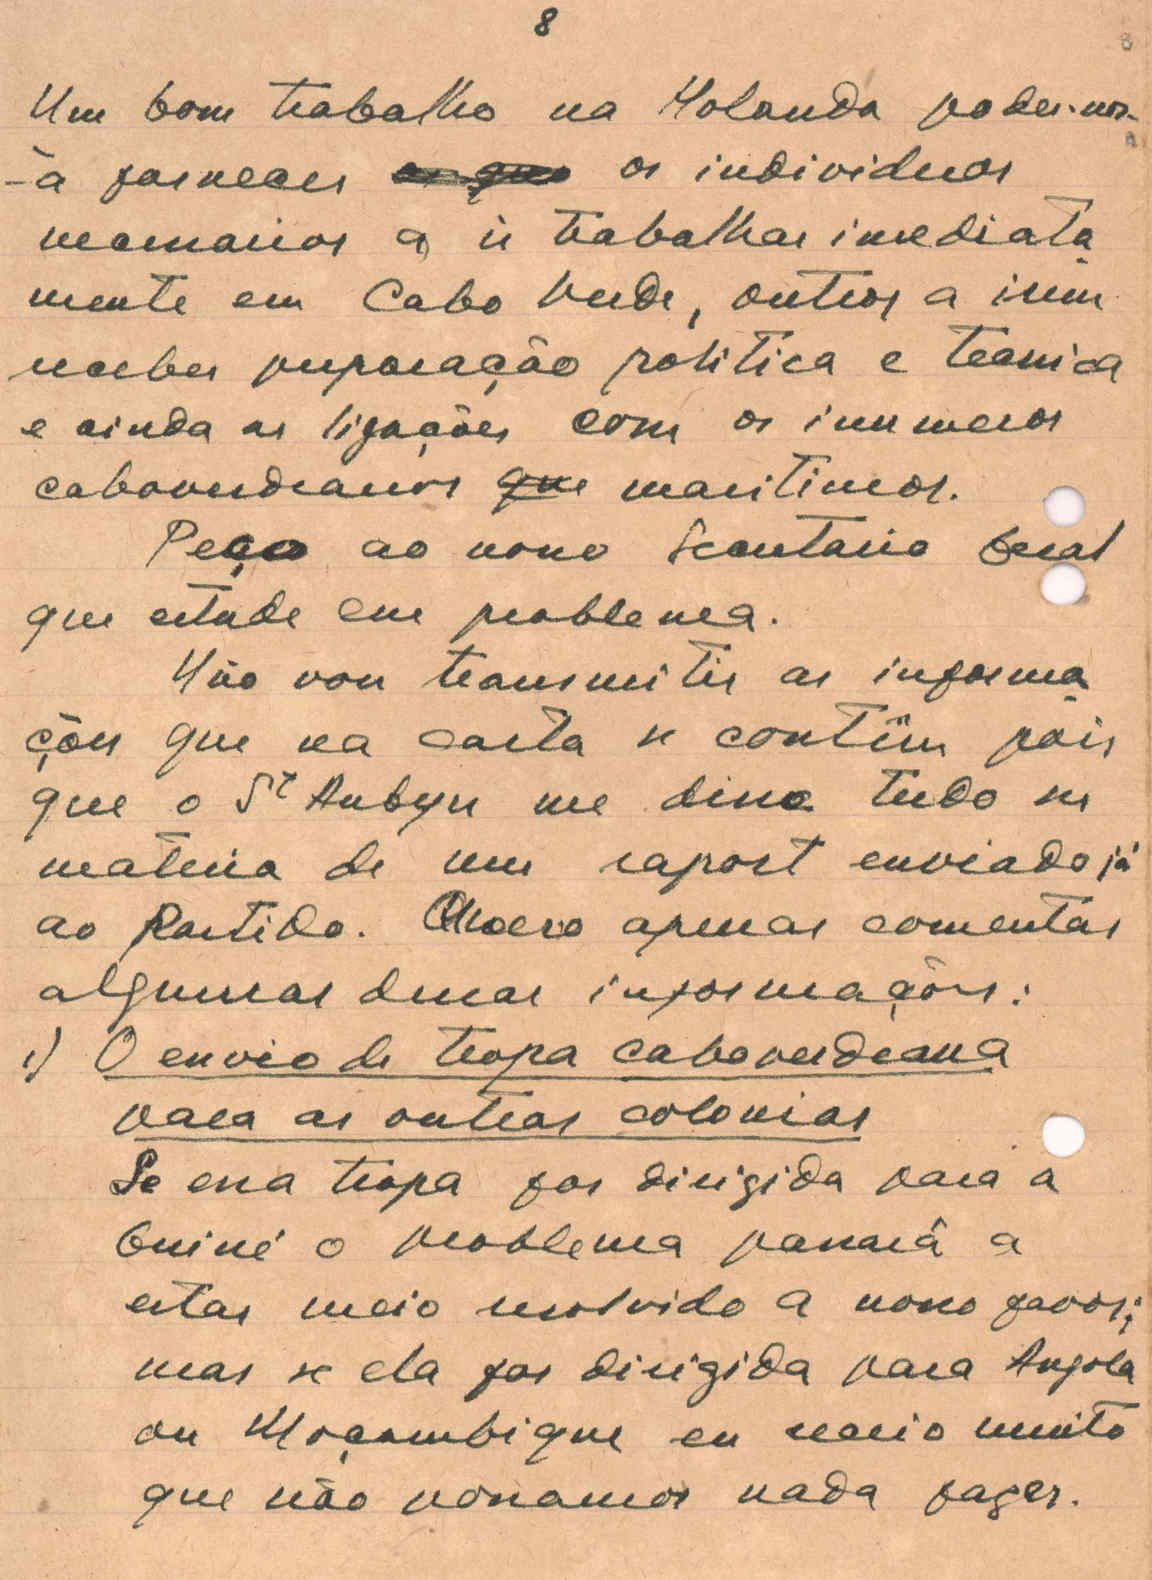 8
Um bom trabalho na Holanda poder-nos-
-á fornecer os individuos
necessarios a ir trabalhar imediata
mente em Cabo Verde, outros a irem
receber preparação politica e tecnica
e ainda as ligações com os inumeros
caboverdeanos que maritimos.
Peço ao nosso Secretario Geral
que estude esse problema.
Não vou transmitir as informa
ções que na carta se contêm pois
que o St Aubyn me disse tudo ser
materia de um raport enviado já
ao Partido. Quero apenas comentar
algumas dessas informações:
1) O envio de tropa caboverdeana
para as outras colonias
Se essa tropa for dirigida para a
Guiné o problema passará a
estar meio resolvido a nosso favor;
mas se ela for dirigida para Angola
ou Moçambique eu receio muito
que não possamos nada fazer.